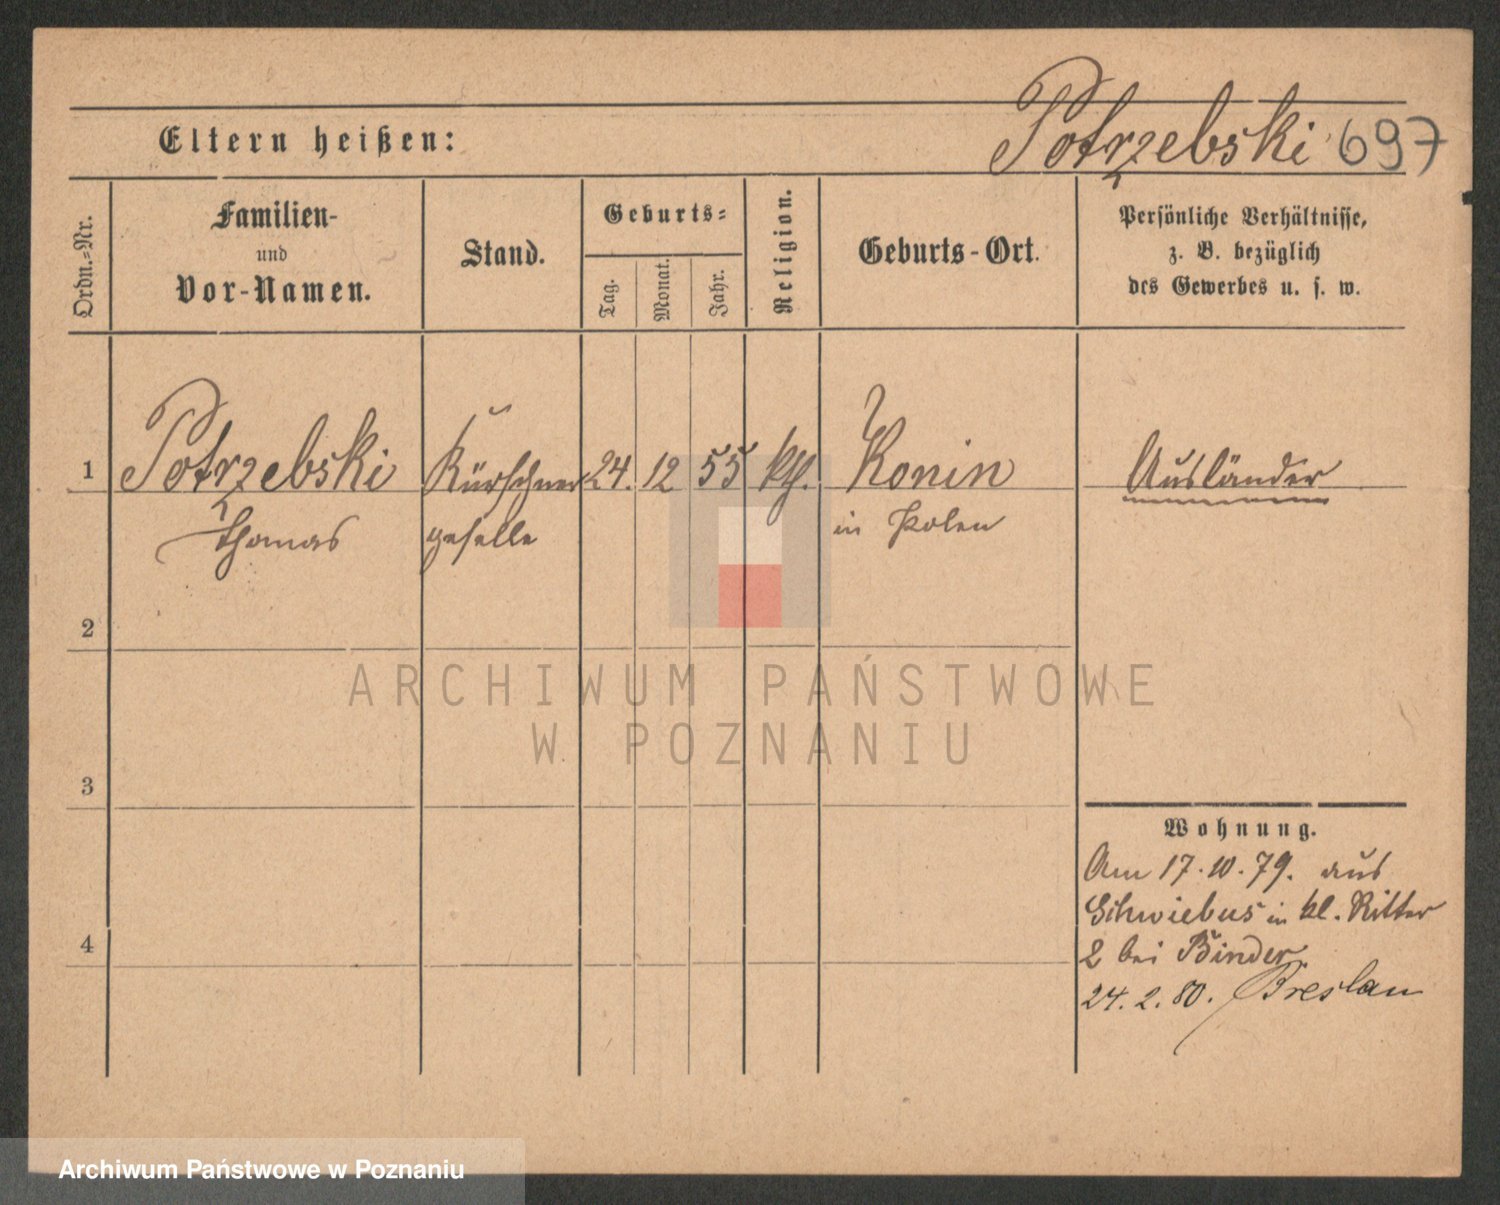 Potrzebski 697
Eltern heißen:
Ordn.=Nr.
Familien-
und
Vor-Namen.
Stand.
Geburts=
Tag.
Monat.
Jahr.
Religion.
Geburts-Ort.
Persönliche Verhältnisse,
z. B. bezüglich
des Gewerbes u. s. w.
1 Potrzebski Kürschner 24. 12 55 kth. Konin Ausländer
Thomas geselle in Polen
2
3
4
Wohnung.
Am 17.10.79. aus
Schwiebus in kl. Ritter
2 bei Binder
24.2.80. Breslau
ARCHIWUM PAŃSTWOWE
W POZNANIU
Archiwum Państwowe w Poznaniu